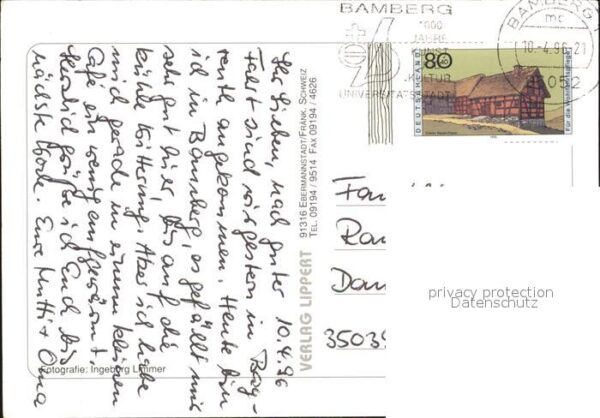 BAMBERG
1000
JAHRE
KUNST
KULTUR
UNIVERSITÄTSSTADT
BAMBERG 1
mc
10.-4.96-21
9052
80
+40
DEUTSCHLAND
Für die Wohlfahrtspflege
10.4.96
Ihr Lieben, nach guter
Fahrt sind wir gestern in Bay-
reuth angekommen. Heute bin
ich in Bamberg, es gefällt mir
sehr gut hier, bis auf die
kühle Witterung. Aber ich habe
mich gerade in einem kleinen
Café ein wenig aufgewärmt.
Herzlich grüße ich Euch bis
nächste Woche. Eure Mutti + Oma
VERLAG LIPPERT
91316 EBERMANNSTADT/FRÄNK. SCHWEIZ
TEL. 09194 / 9514 FAX 09194 / 4626
Fotografie: Ingeborg Limmer
Fa
Ra
Da
3503
privacy protection
Datenschutz